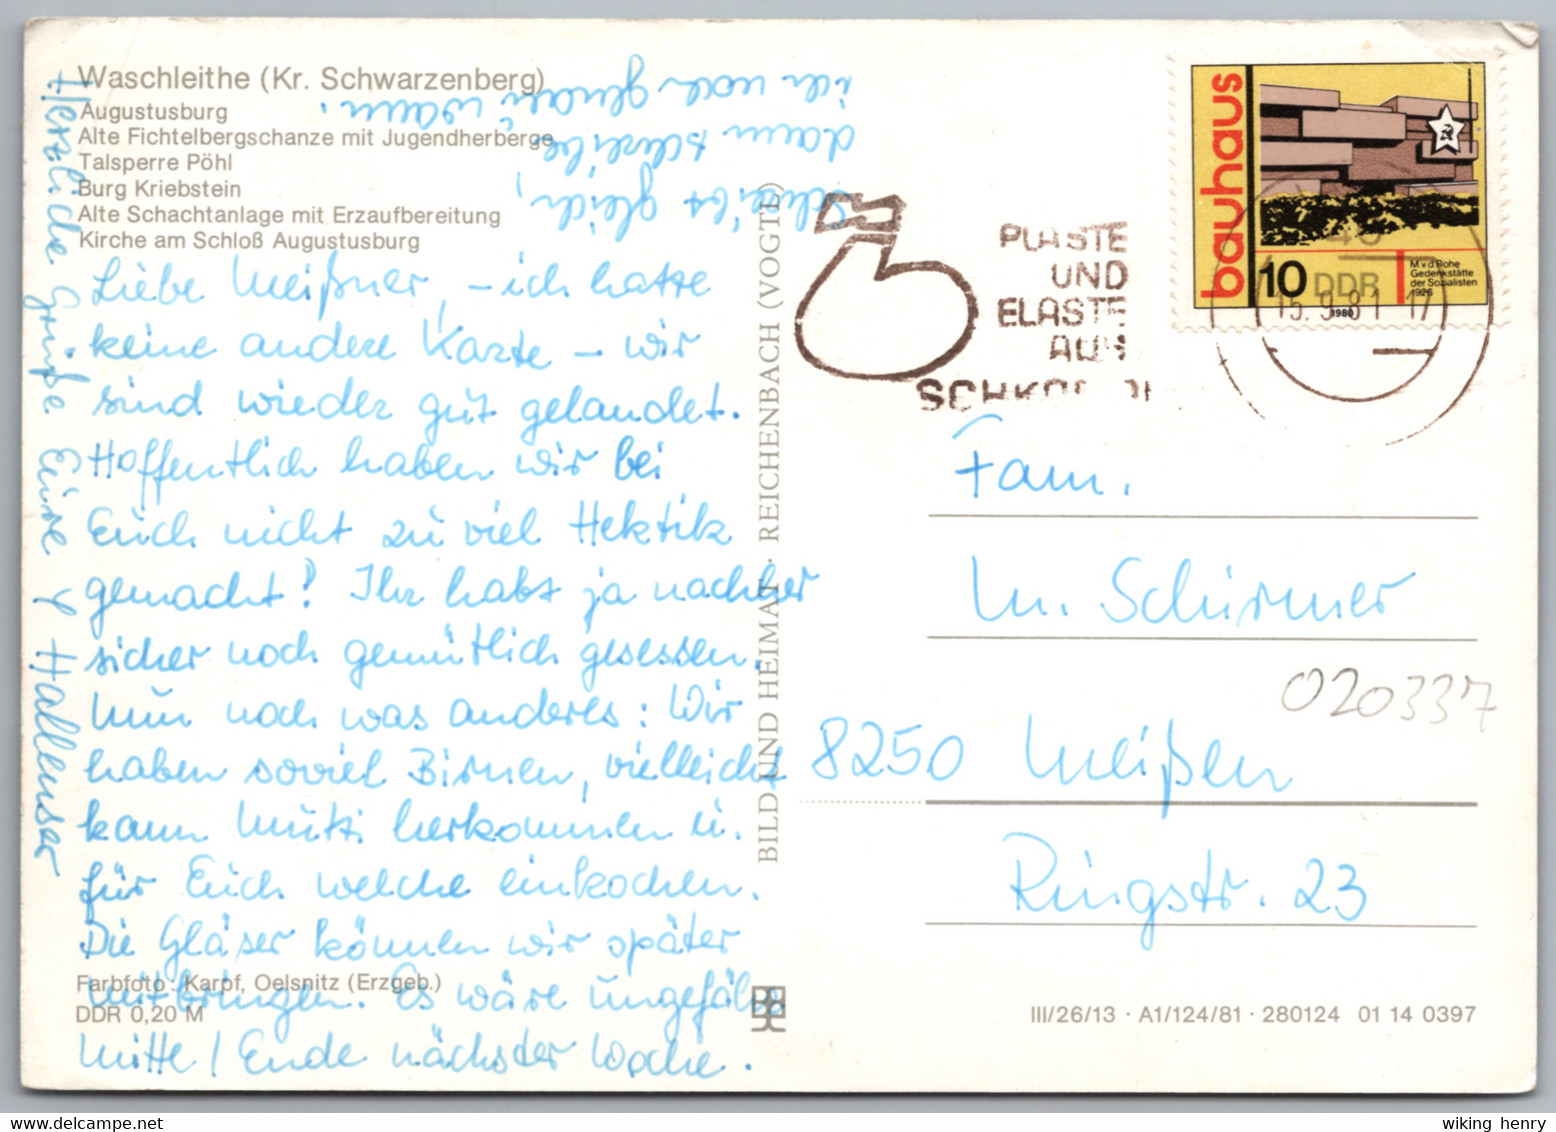 Waschleithe (Kr. Schwarzenberg)
Augustusburg
Alte Fichtelbergschanze mit Jugendherberge
Talsperre Pöhl
Burg Kriebstein
Alte Schachtanlage mit Erzaufbereitung
Kirche am Schloß Augustusburg
Liebe Meißner, - ich hatte
keine andere Karte - wir
sind wieder gut gelandet.
Hoffentlich haben wir bei
Euch nicht zu viel Hektik
gemacht? Ihr habt ja nachher
sicher noch gemütlich gesessen.
Nun noch was anderes: Wir
haben soviel Birnen, vielleicht
kann Mutti herkommen u.
für Euch welche einkochen.
Die Gläser können wir später
mitbringen. Es wäre ungefähr
Mitte/Ende nächster Woche.
Schreibt gleich,
dann schreibe
ich noch genau wann.
Herzliche Grüße Eure Hallenser
Farbfoto: Karpf, Oelsnitz (Erzgeb.)
DDR 0,20 M
BILD UND HEIMAT · REICHENBACH (VOGTL)
PLASTE
UND
ELASTE
AUS
bauhaus
10 DDR
M v d Rohe
Gedenkstätte
der Sozialisten
1926
1980
15.9.81 17
Fam.
M. Schirmer
020337
8250 Meißen
Ringstr. 23
III/26/13 · A1/124/81 · 280124 01 14 0397
wiking henry